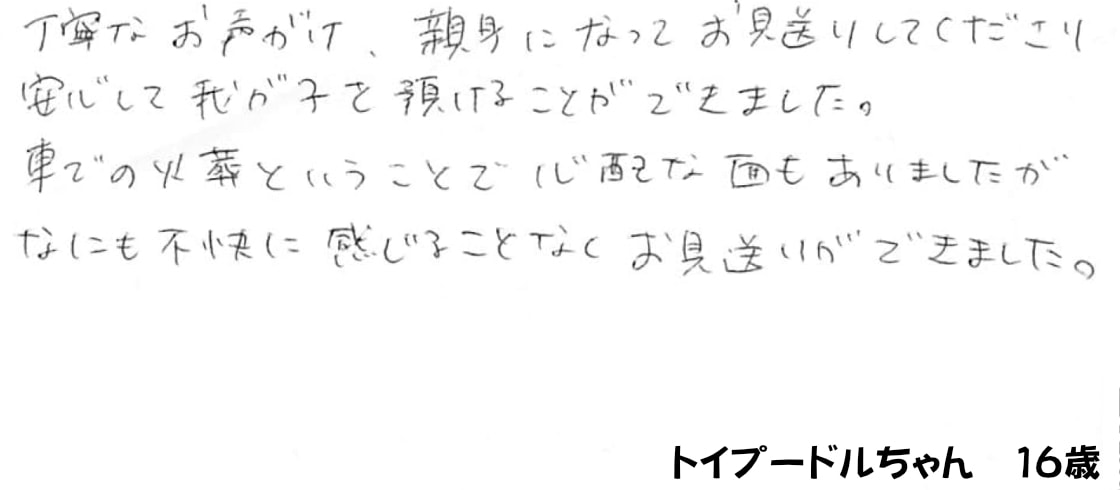 丁寧なお声がけ、親身になってお見送りしてくださり
安心して我が子を預けることができました。
車での火葬ということで心配な面もありましたが
なにも不快に感じることなくお見送りができました。
トイプードルちゃん　16歳